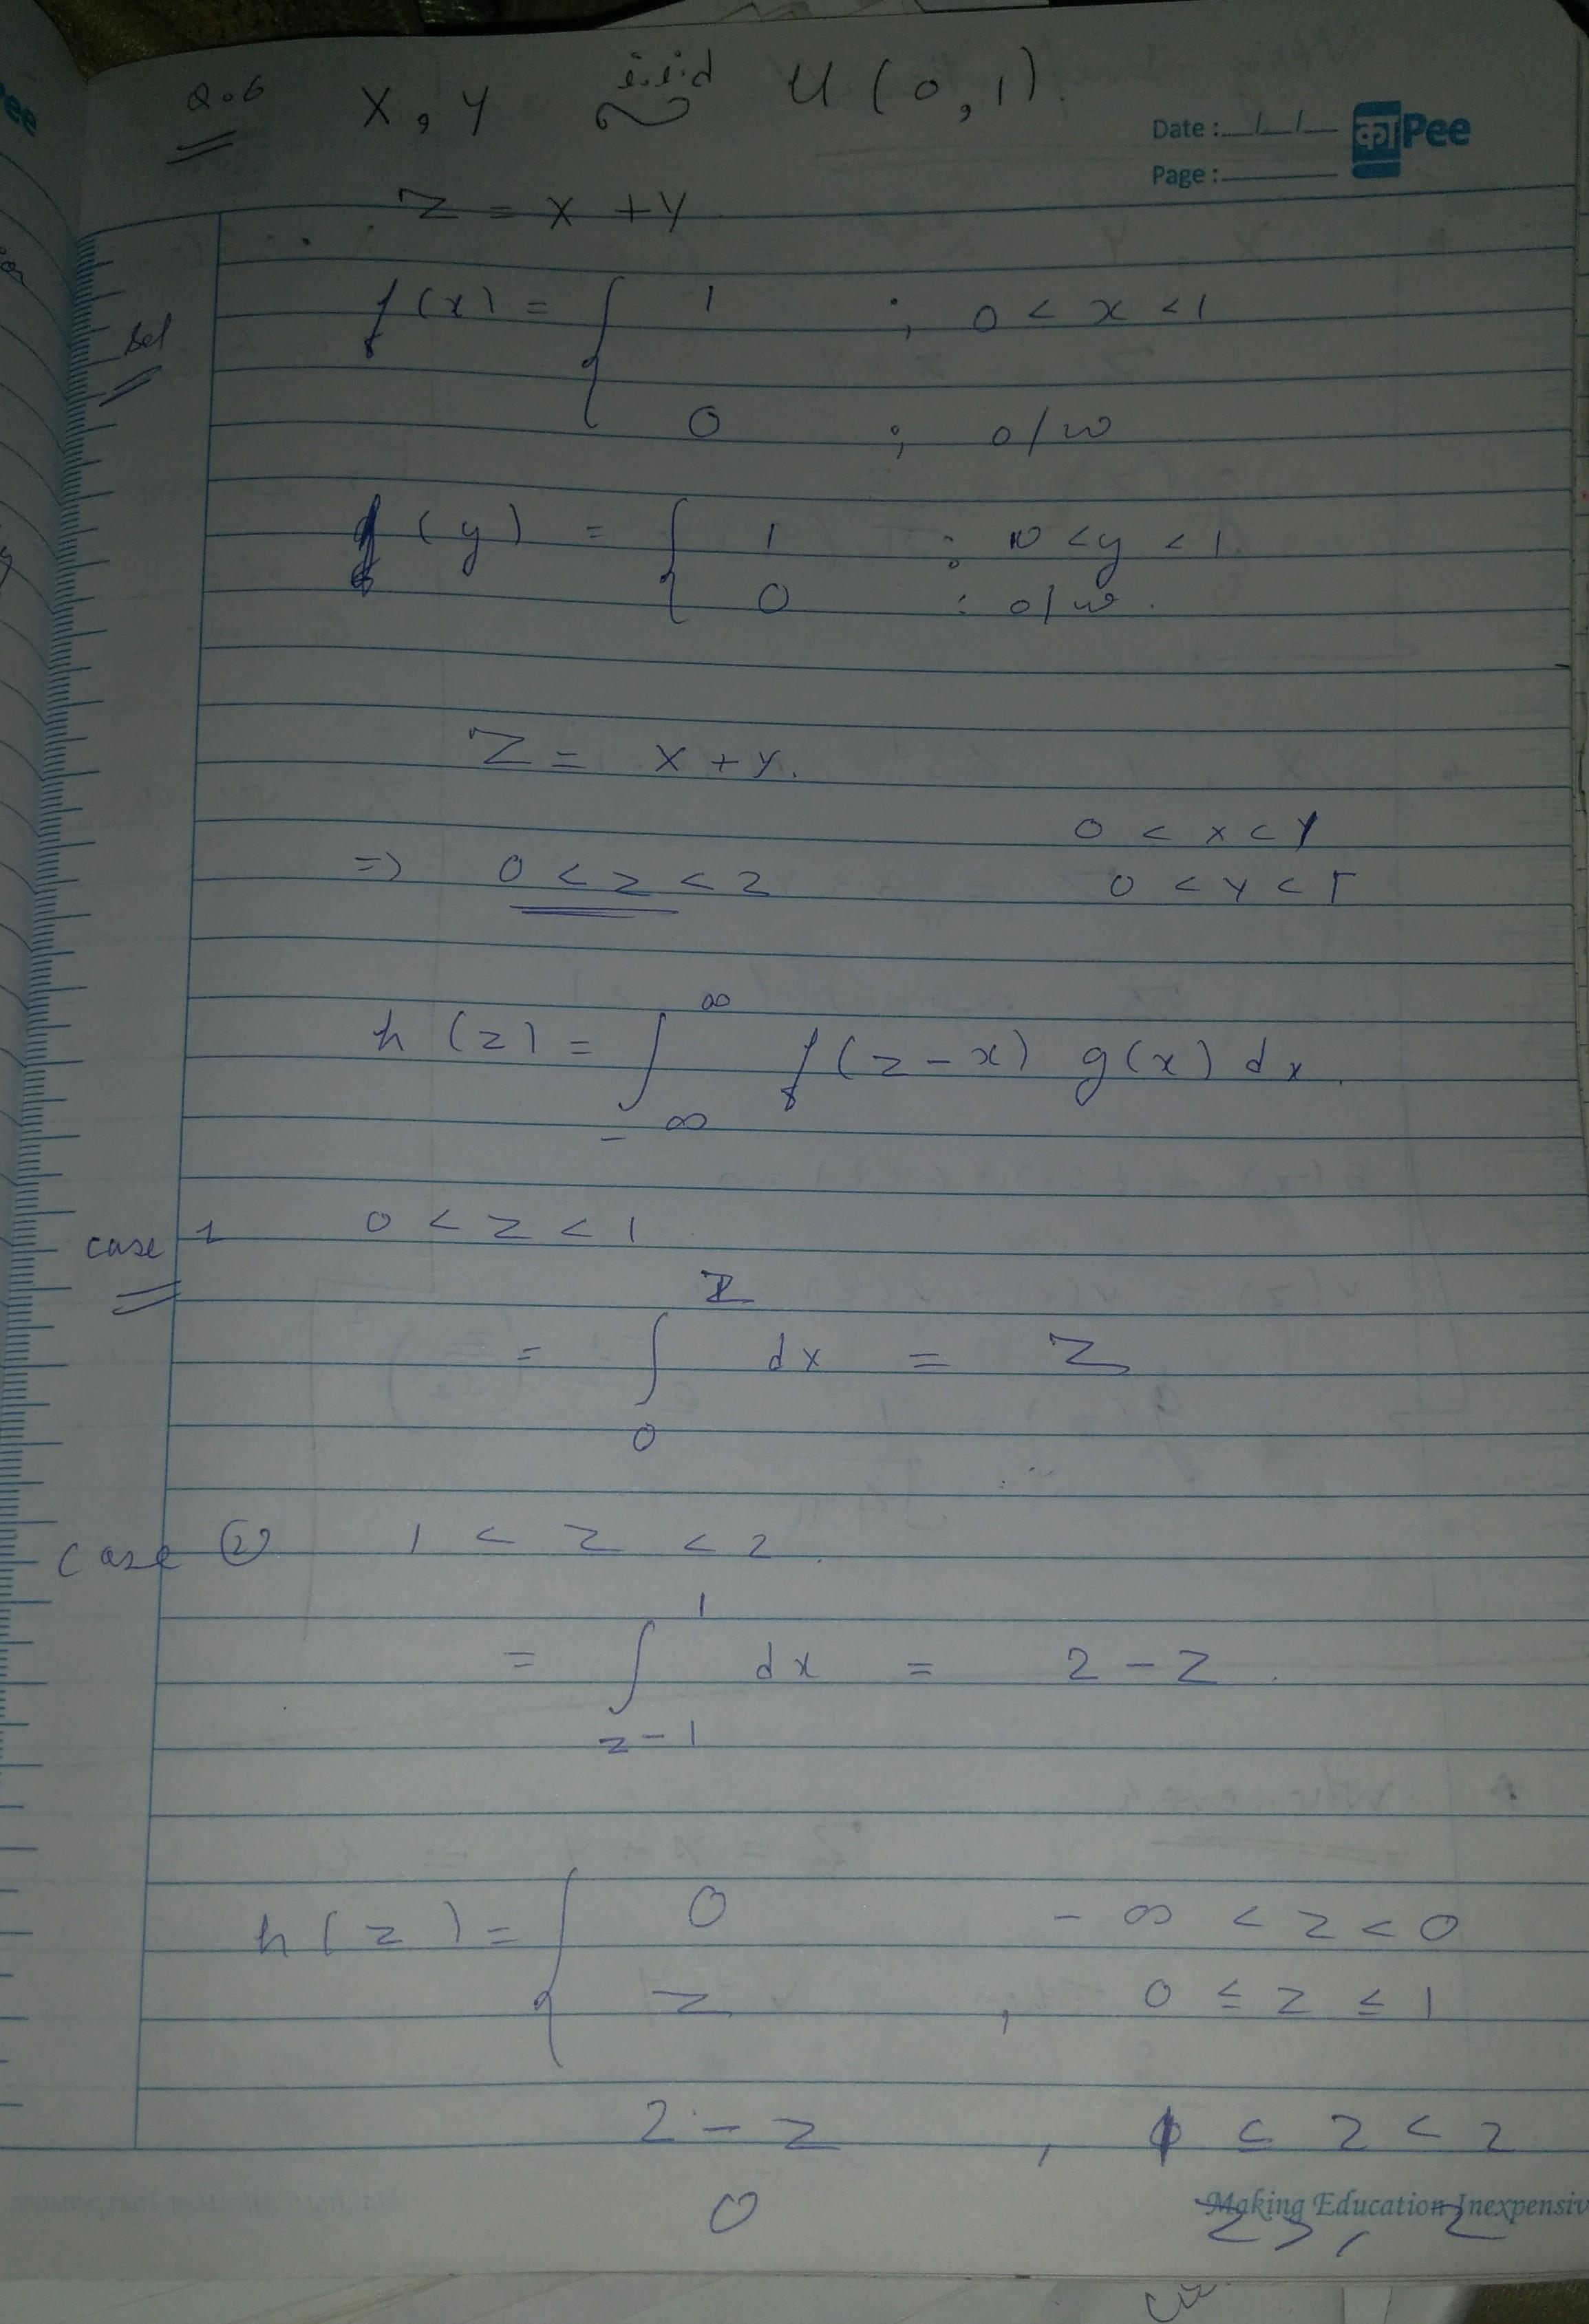 Q.6 X, Y i.i.d ~ U(0,1).
Date : / / काPee
Page :
Z = X + Y
Sol f(x) = { 1 ; 0 < x < 1
0 ; o/w
f(y) = { 1 : 0 < y < 1
0 : o/w.
Z = X + Y.
0 < x < 1
=> 0 < z < 2 0 < y < 1
h(z) = ∫ from -∞ to ∞ f(z-x) g(x) dx.
case 1 0 < z < 1
= ∫ from 0 to z dx = z
case ② 1 < z < 2.
= ∫ from z-1 to 1 dx = 2 - z.
h(z) = { 0 -∞ < z < 0
z , 0 ≤ z ≤ 1
2 - z , 1 ≤ z < 2
0
Making Education Inexpensiv